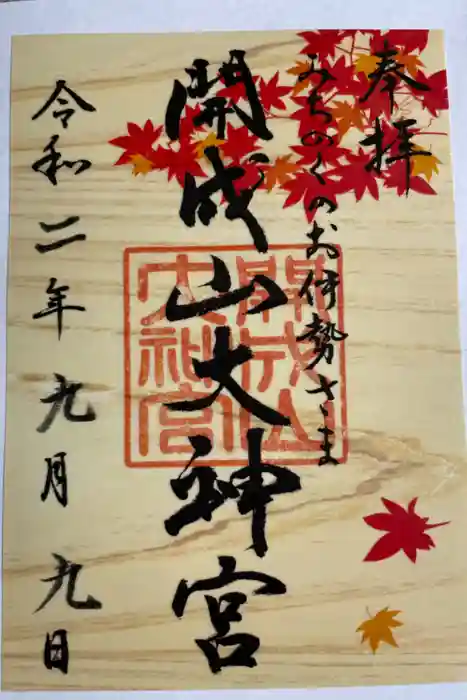 奉拝
みちのくのお伊勢さま
開成山大神宮
開成山
大神宮
令和二年九月九日